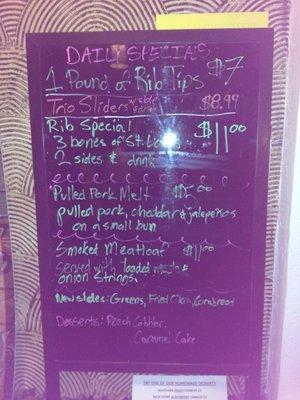 DAILY SPECIALS
1 Pound of Rib Tips $7
Trio Sliders w/ side & drink $8.99
Rib Special $11.00
3 bones of St.
2 sides & drink
Pulled Pork Melt
pulled pork, cheddar & jalepenos
on a small bun
Smoked Meatloaf $11.00
served with loaded
onion strings.
New sides: Greens, Fried Okra, Cornbread
Desserts: Peach Cobbler,
Caramel Cake
TRY ONE OF OUR HOMEMADE DESSERTS